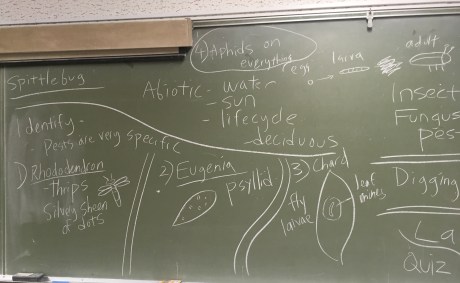 4) Aphids on
everything
egg
larva
adult
Spittlebug
Abiotic - water
- sun
- lifecycle
- deciduous
Insect
Fungus
pes
Identify -
- Pests are very specific
1) Rhododendron
thrips
Silvery sheen
of dots
2) Eugenia
psyllid
3) Chard
fly
larvae
leaf
mines
Digging
La
Quiz